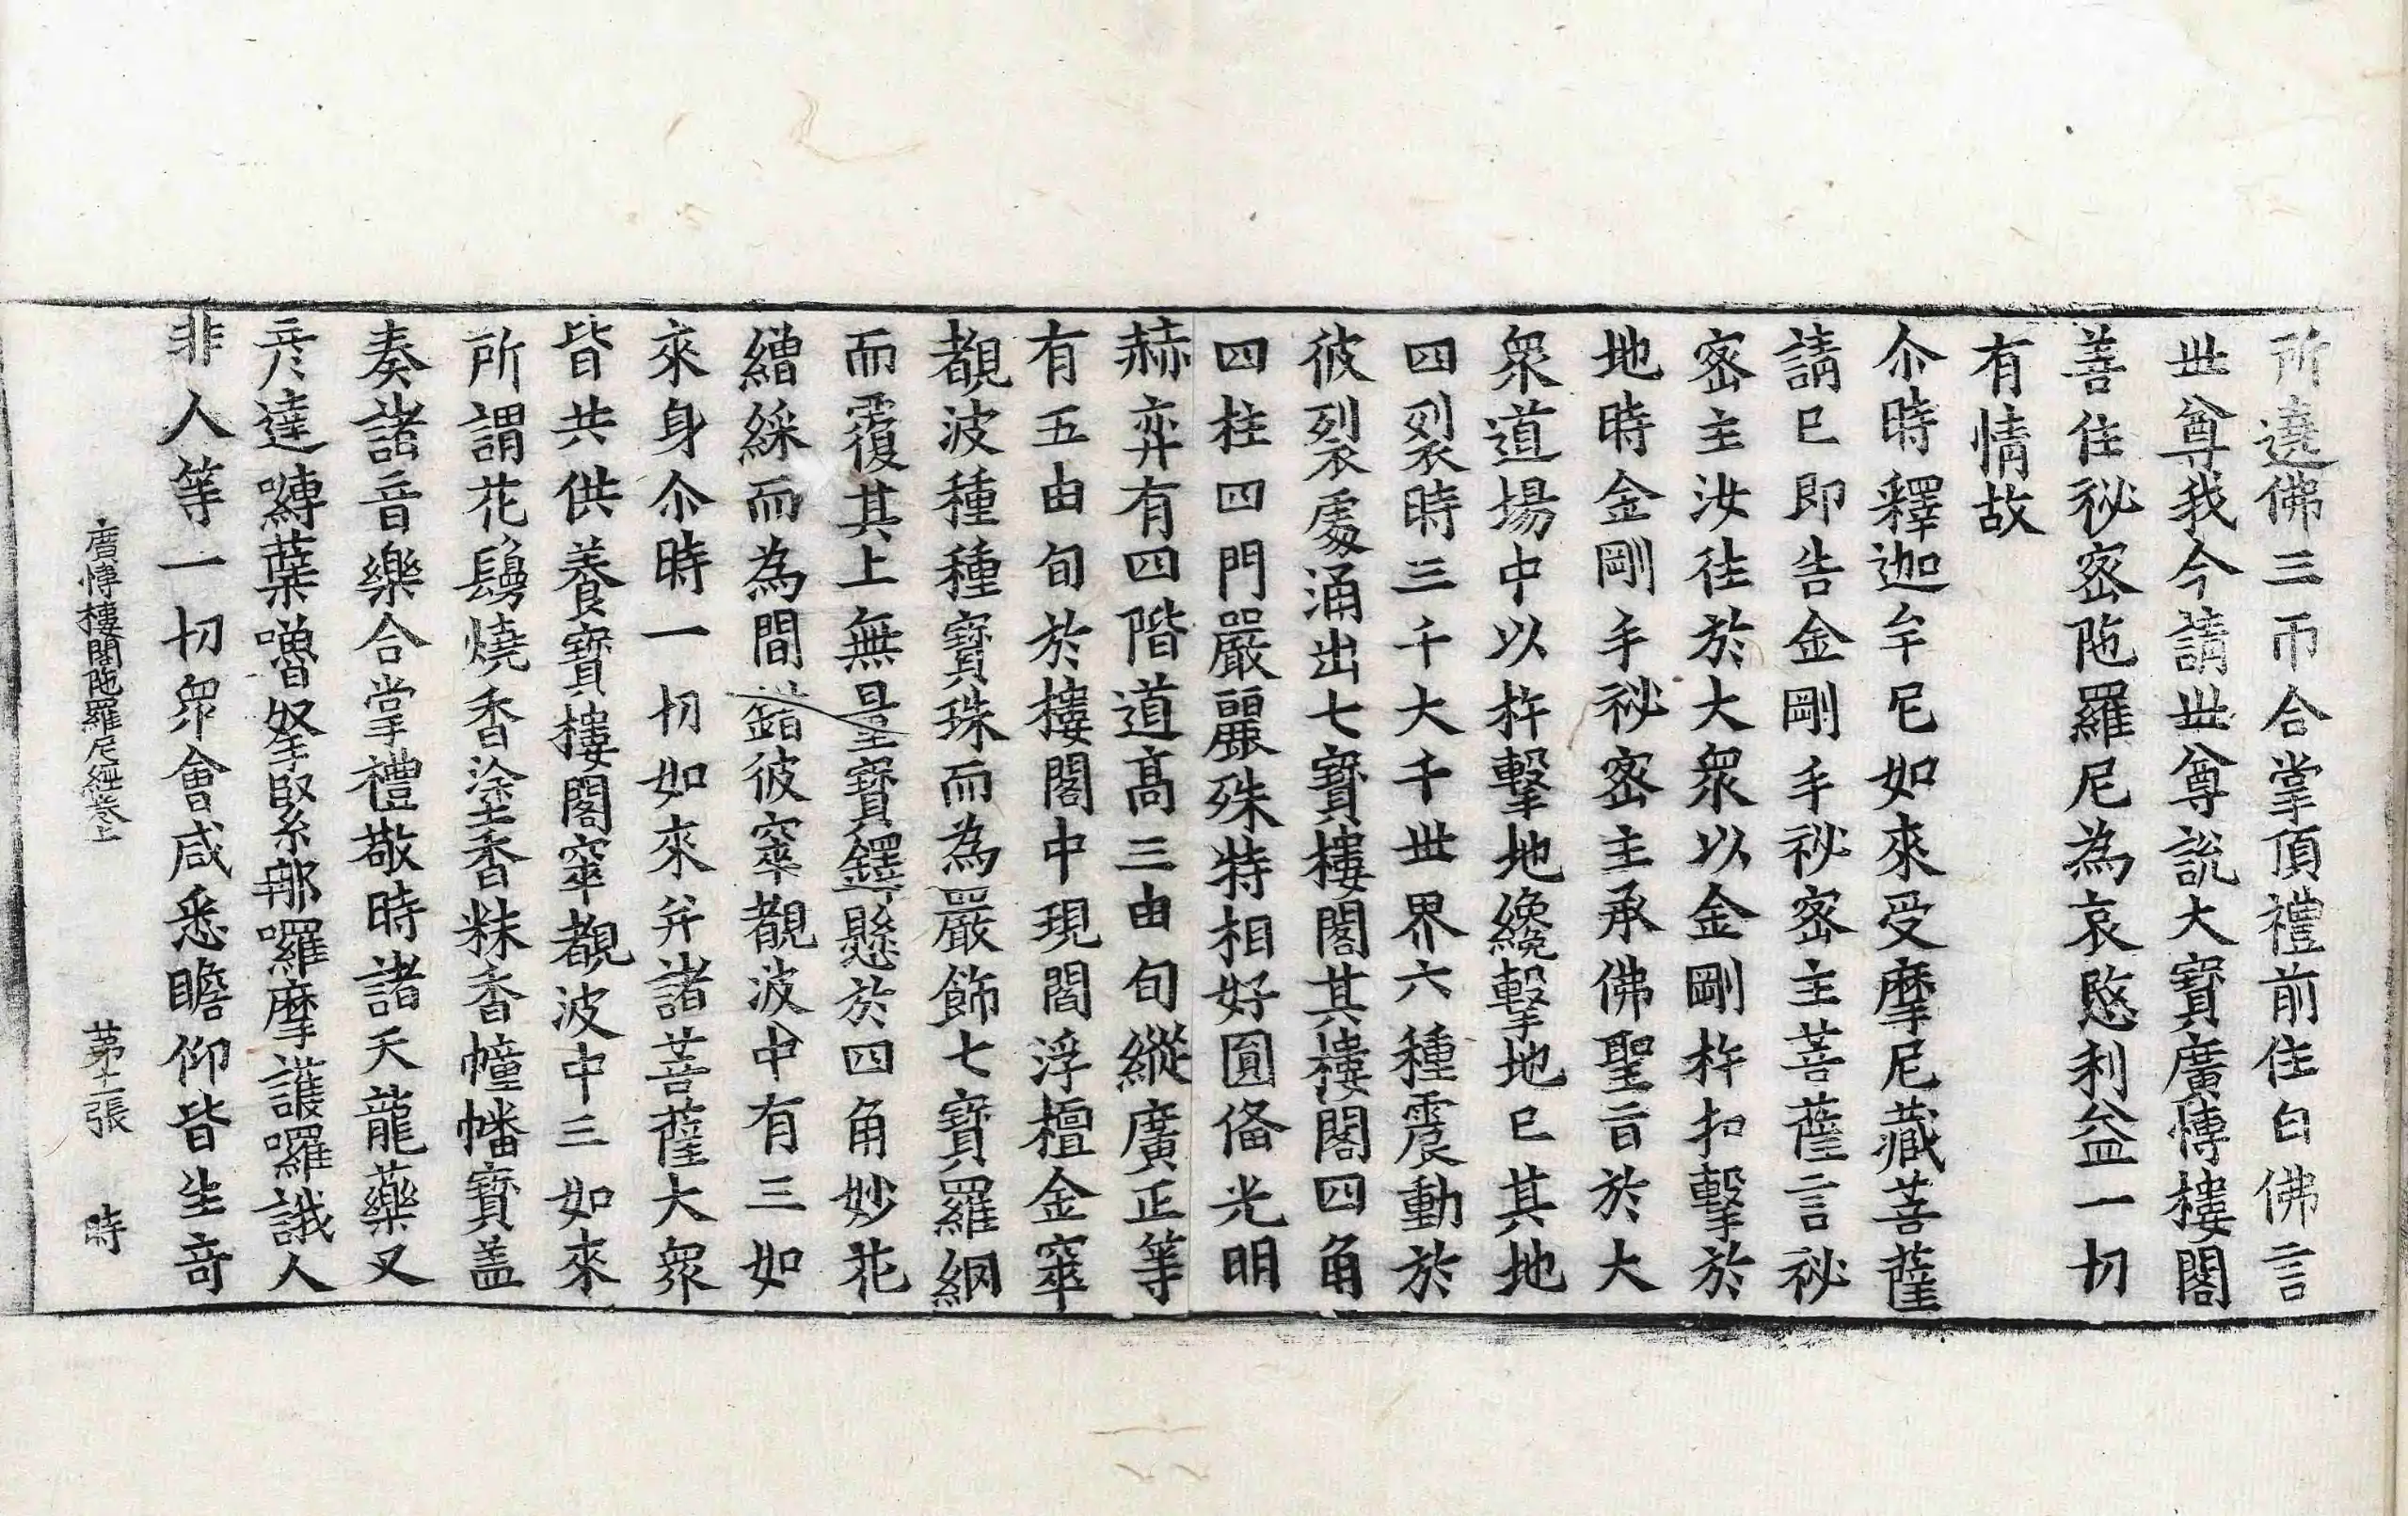 所遶佛三帀合掌頂禮前住白佛言
世尊我今請世尊說大寶廣博樓閣
善住祕密陁羅尼為哀愍利益一切
有情故
尒時釋迦牟尼如來受摩尼藏菩薩
請已即告金剛手祕密主菩薩言祕
密主汝往於大眾以金剛杵扣擊於
地時金剛手祕密主承佛聖旨於大
眾道場中以杵擊地纔擊地已其地
四裂時三千大千世界六種震動於
彼裂處涌出七寶樓閣其樓閣四角
四柱四門嚴麗殊特相好圓俻光明
赫弈有四階道髙三由旬縱廣正等
有五由旬於樓閣中現閻浮檀金窣
覩波種種寶珠而為嚴飾七寶羅網
而覆其上無量寶鐸懸於四角妙花
繒綵而為間錯彼窣覩波中有三如
來身尒時一切如來并諸菩薩大眾
皆共供養寶樓閣窣覩波中三如來
所謂花鬘燒香塗香粖香幢幡寶盖
奏諸音樂合掌禮敬時諸天龍藥叉
彥達嚩蘗嚕拏緊那囉摩護囉誐人
非人等一切眾會咸悉瞻仰皆生奇
廣博樓閣陁羅尼經卷上 苐十二張 時